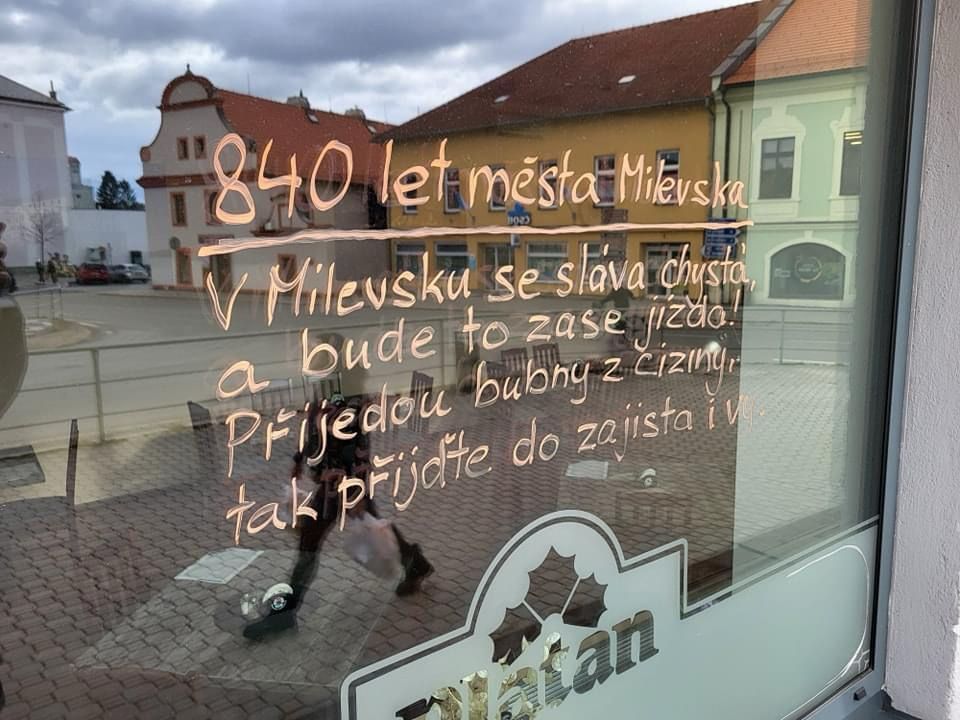 840 let města Milevska
V Milevsku se sláva chystá,
a bude to zase jízda!
Přijedou bubny z ciziny,
tak přijďte do zajista i vy.
Platan
ČSOB